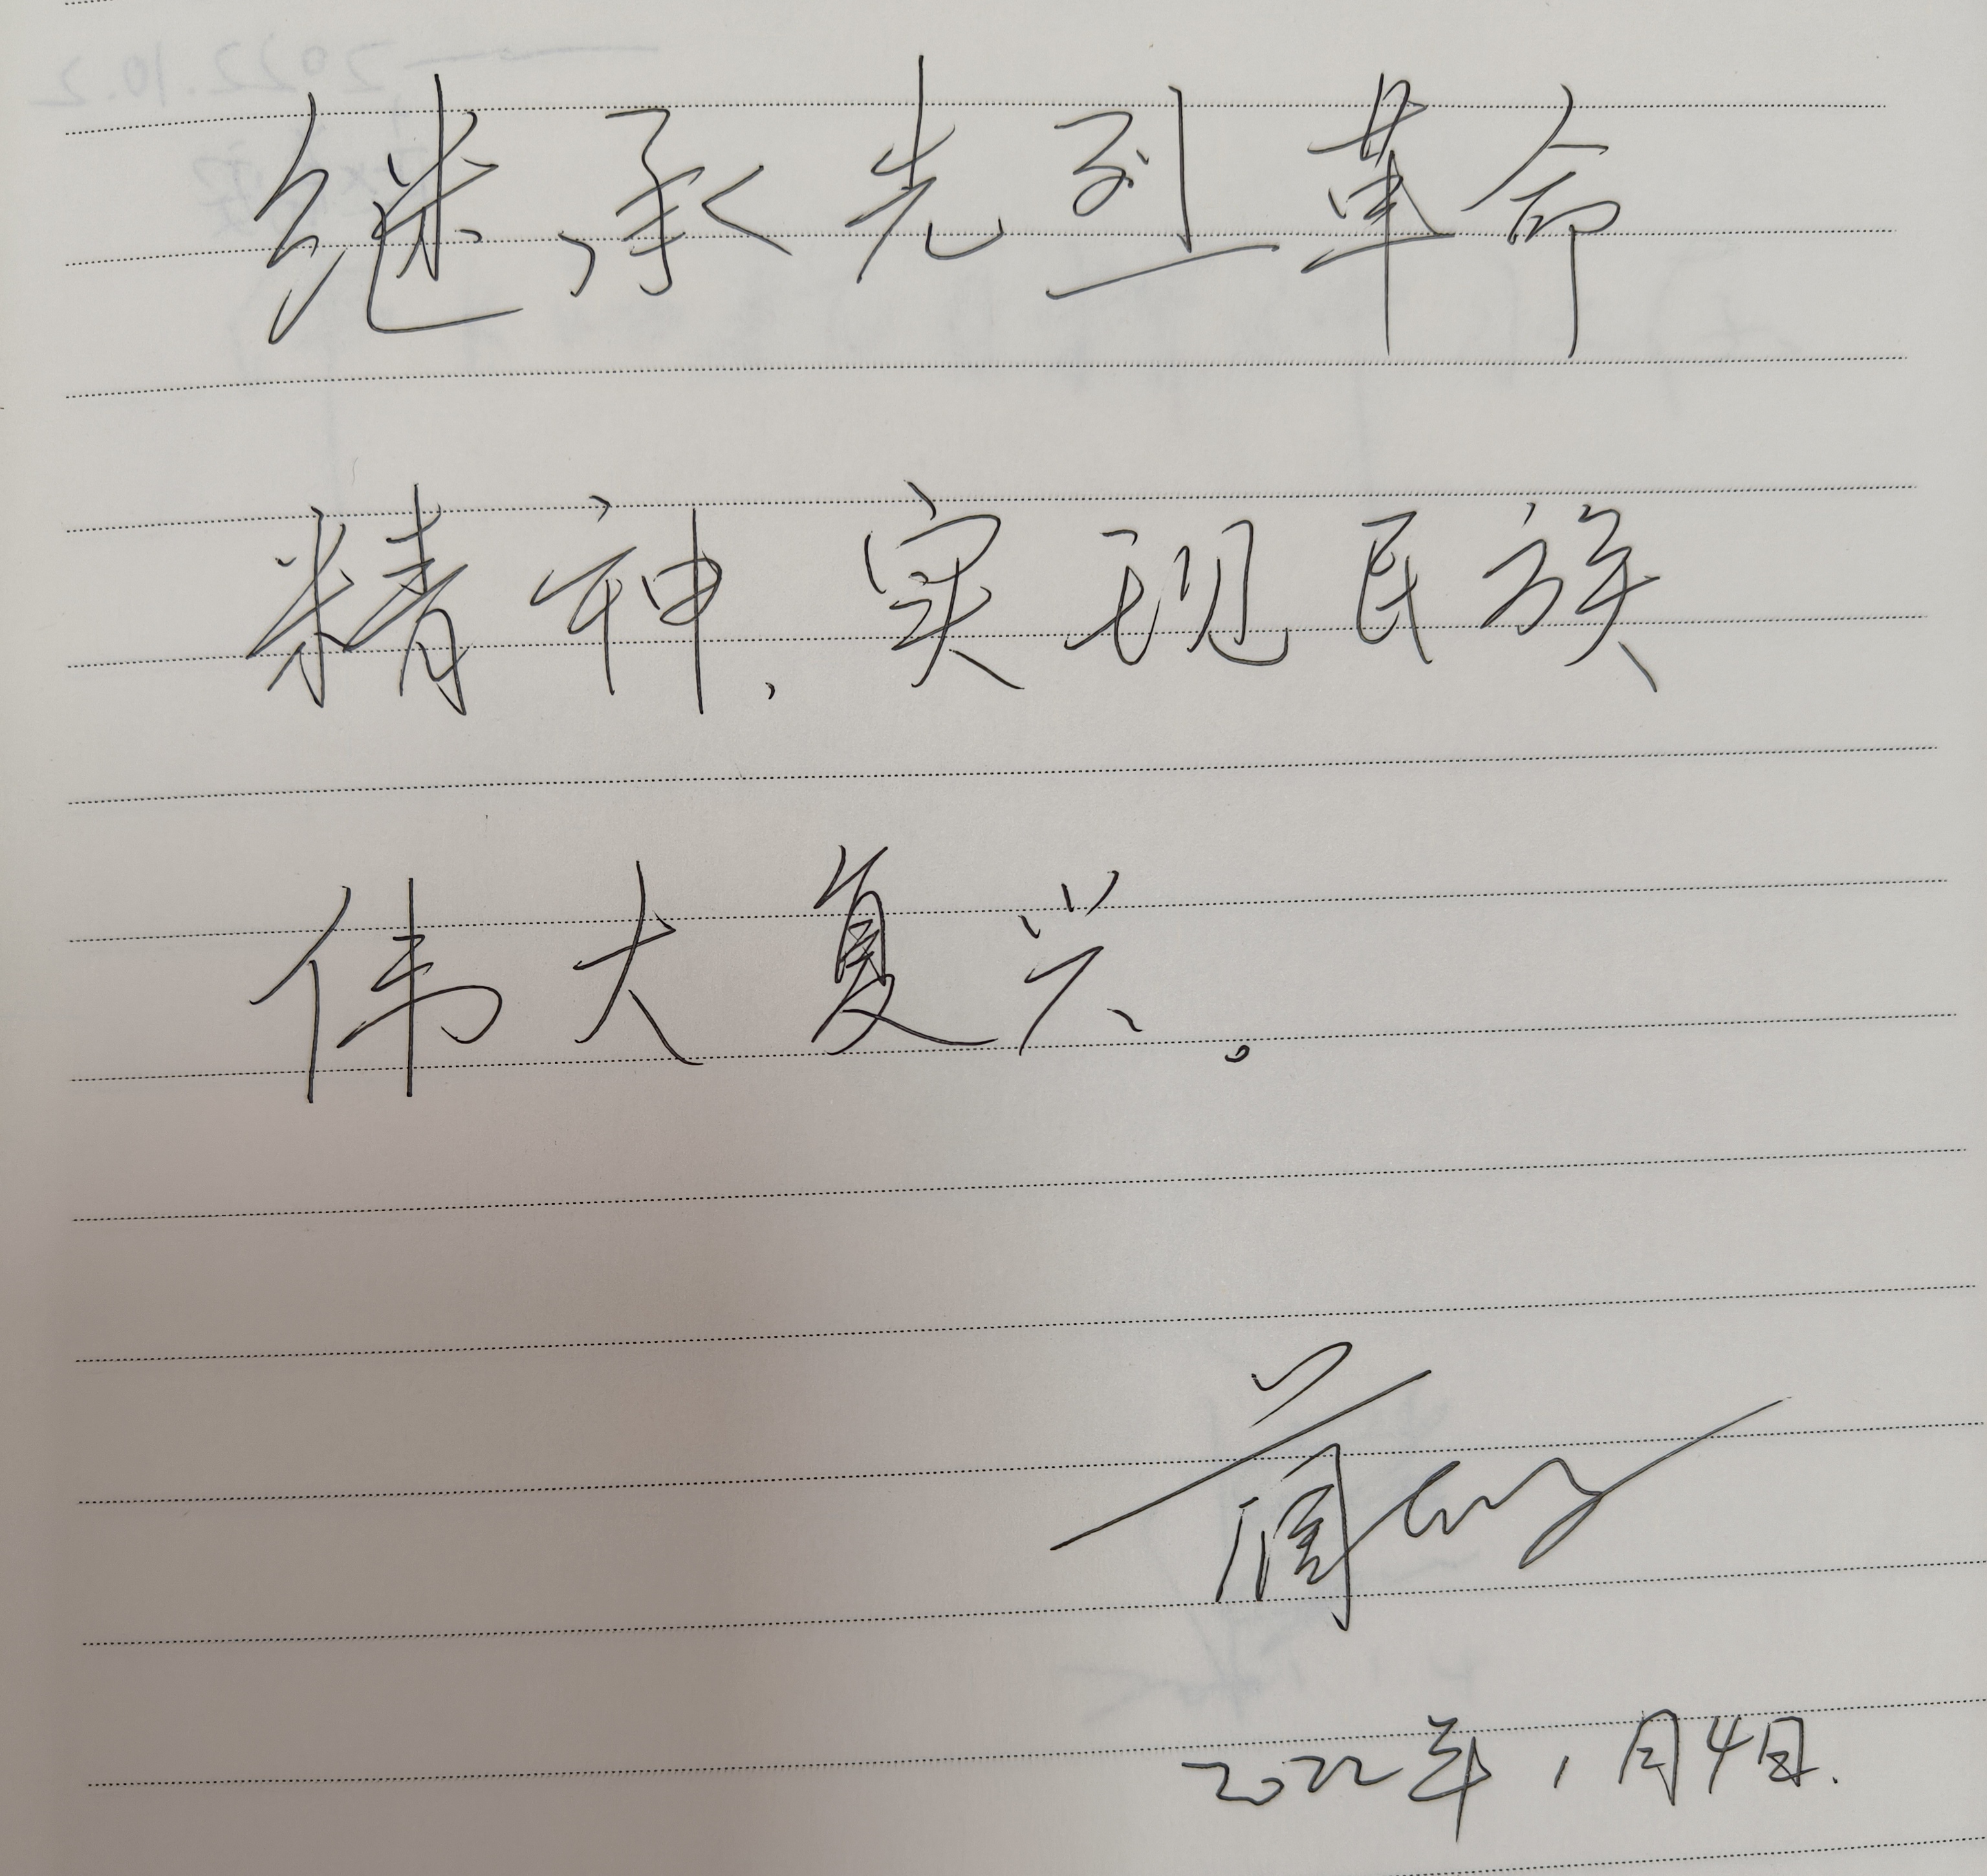 继承先烈革命
精神，实现民族
伟大复兴。
2022年1月4日.